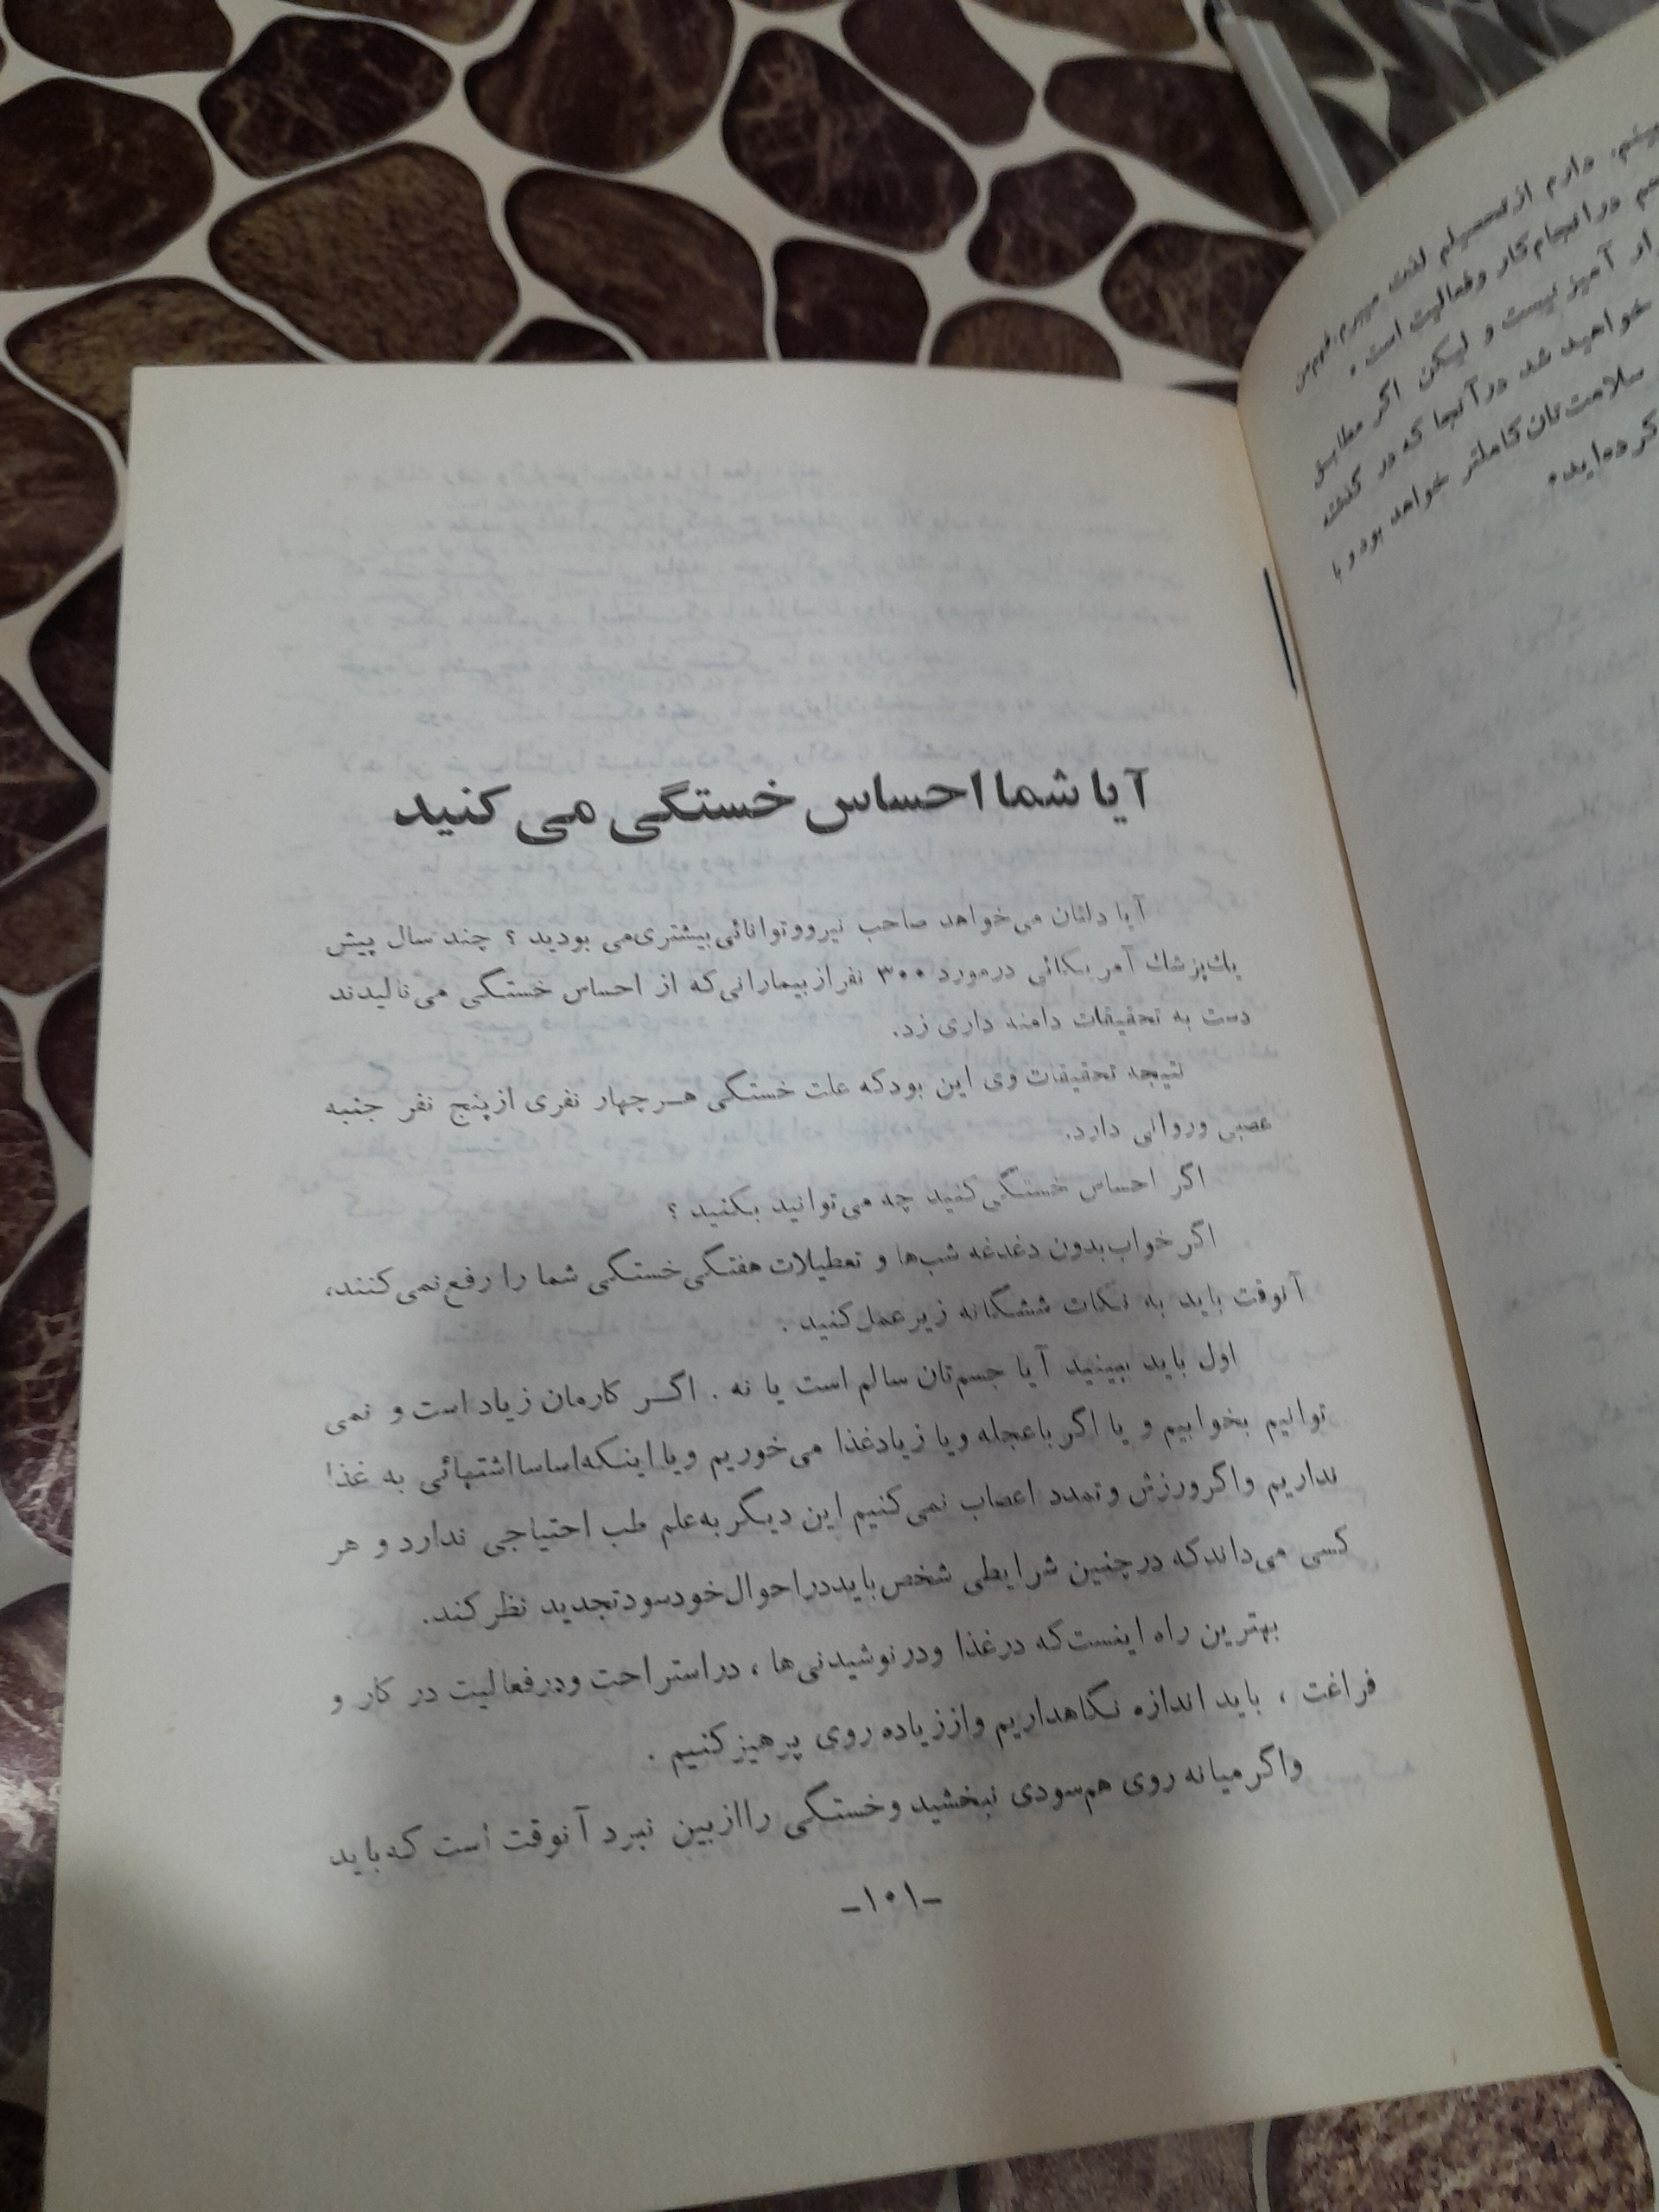 آیا شما احساس خستگی می کنید
آیا دلتان می‌خواهد صاحب نیرو و توانائی بیشتری می بودید ؟ چند سال پیش
یك پزشك آمریکائی در مورد ۳۰۰ نفر از بیمارانی که از احساس خستگی می نالیدند
دست به تحقیقات دامنه داری زد.
نتیجه تحقیقات وی این بود که علت خستگی هر چهار نفری از پنج نفر جنبه
عصبی و روانی دارد.
اگر احساس خستگی کنید چه می‌توانید بکنید ؟
اگر خواب بدون دغدغه شب‌ها و تعطیلات هفتگی خستگی شما را رفع نمی کنند،
آنوقت باید به نکات ششگانه زیر عمل کنید .
اول باید ببینید آیا جسم‌تان سالم است یا نه . اگر کارمان زیاد است و نمی
توانیم بخوابیم و یا اگر با عجله و یا زیاد غذا می‌خوریم و یا اینکه اساسا اشتهائی به غذا
نداریم و اگر ورزش و تمدد اعصاب نمی کنیم این دیگر به علم طب احتیاجی ندارد و هر
کسی می‌داند که در چنین شرایطی شخص باید در احوال خود سود تجدید نظر کند.
بهترین راه اینست که در غذا و در نوشیدنی ها ، در استراحت و در فعالیت در کار و
فراغت ، باید اندازه نگاهداریم و از زیاده روی پرهیز کنیم .
و اگر میانه روی هم سودی نبخشید و خستگی را از بین نبرد آنوقت است که باید
-۱۰۱-
دارم از تحصیلم لذت میبرم.
در انجام کار و فعالیت است .
آمیز نیست و لیکن اگر مطابق
خواهید شد در آنجا که در
سلامت تان کاملتر خواهد بود و با
کرده‌اید.